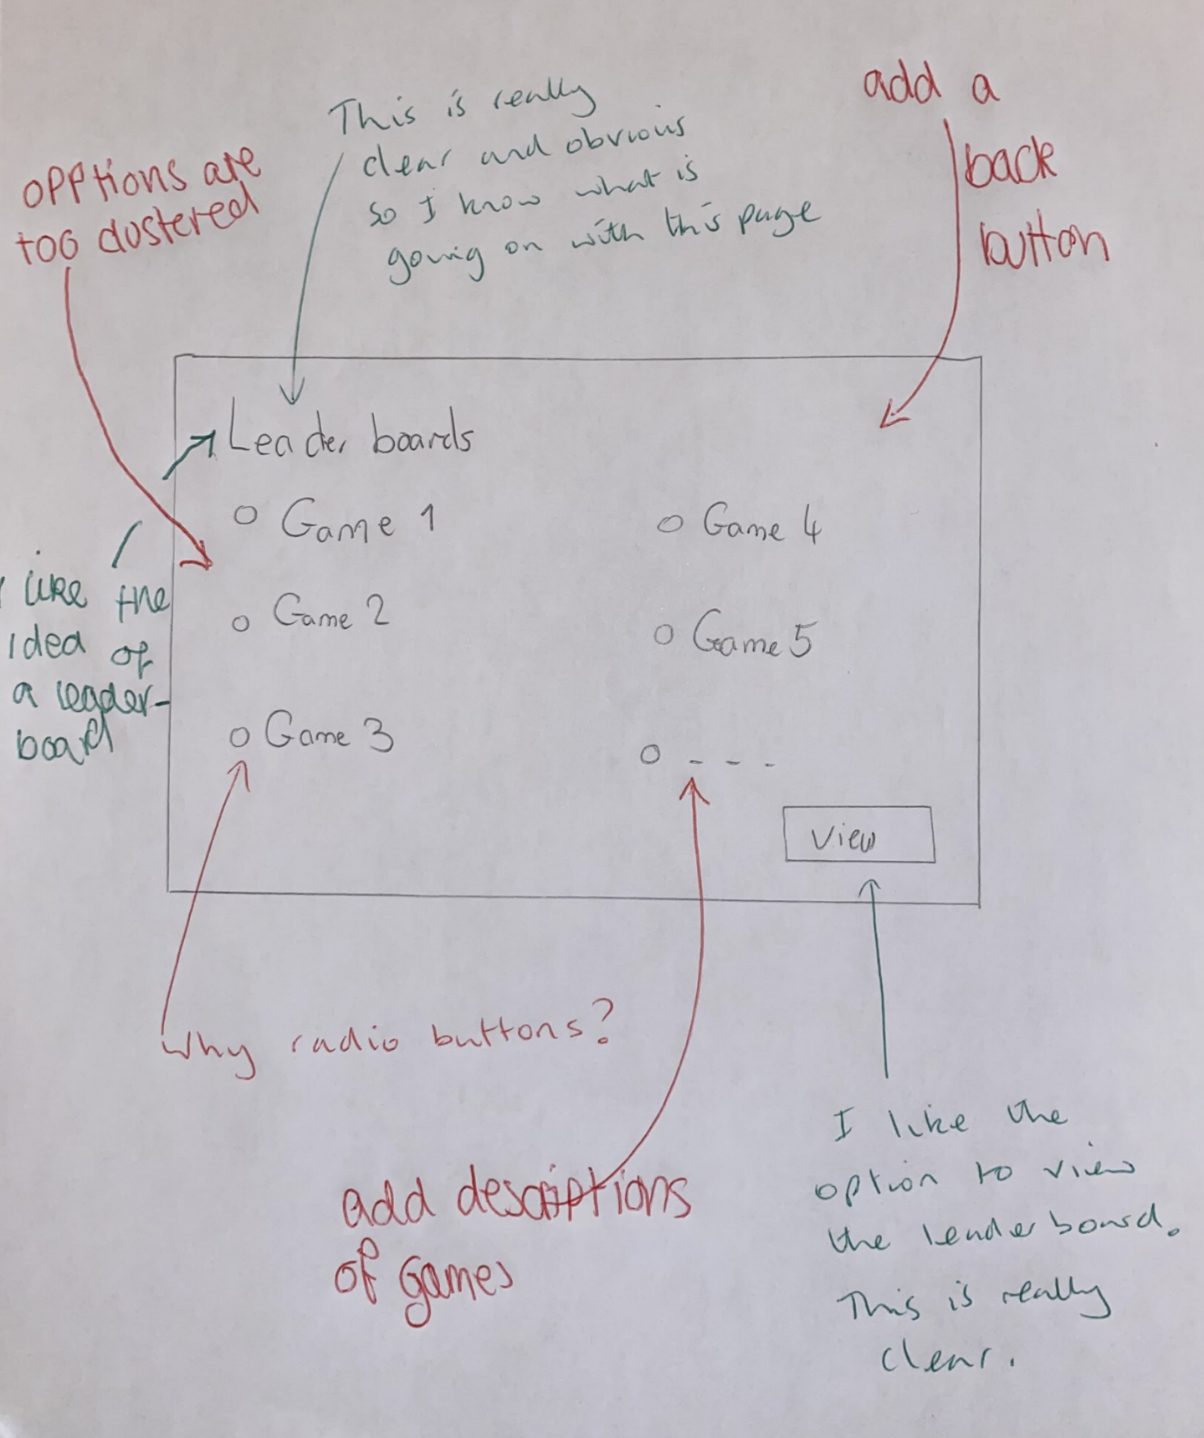 This is really
clear and obvious
so I know what is
going on with this page
add a
back
button
OPPtions are
too clustered
Leader boards
Game 1
Game 2
Game 3
Game 4
Game 5
- - -
View
I like the
idea of
a leader-
board
Why radio buttons?
add descriptions
of Games
I like the
option to view
the leaderboard.
This is really
clear.